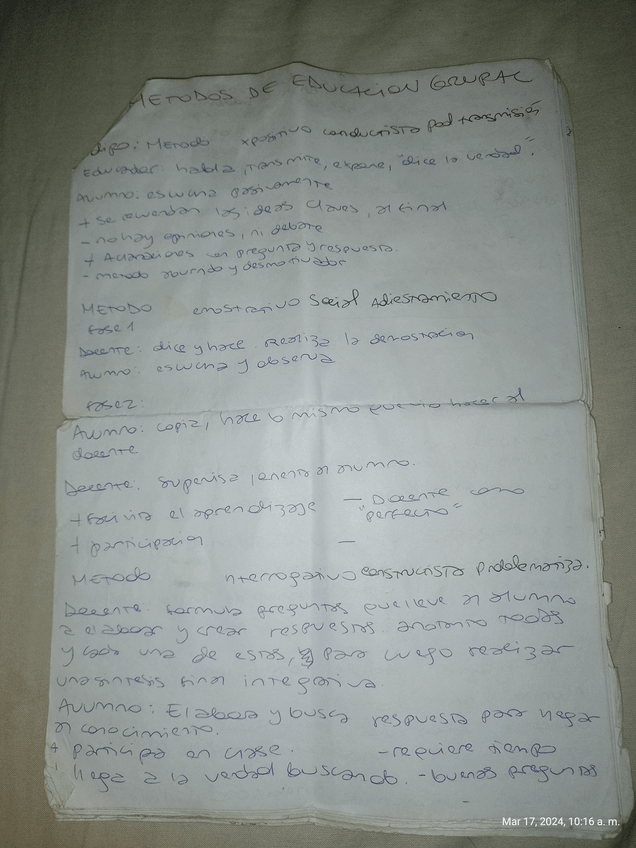 METODOS DE EDUCACION GRUPAL
tipo: Metodo xpositivo conductista por transmisión
Educador habla, transmite, expone, "dice la verdad".
Alumno: escucha pasivamente
+ Se recuerdan las ideas claves, al final
- no hay opiniones, ni debate
+ Aclaraciones con pregunta y respuesta.
- metodo aburrido y desmotivador
METODO emostrativo Social Adiestramiento
fase 1
Docente: dice y hace. Realiza la demostracion
Alumno: escucha y observa
fase 2:
Alumno: copia, hace lo mismo que vio hacer al
docente
Docente: Supervisa al alumno.
+ facilita el aprendizaje — Docente como
"perfecto"
+ participacion —
METODO nterrogativo constructista problematiza.
Docente: formula preguntas que lleve al alumno
a elaborar y crear respuestas. anotando todas
y cada una de estas, para luego realizar
una sintesis final integrativa.
Alumno: Elabora y busca respuesta para llegar
al conocimiento.
+ participa en clase. - requiere tiempo
llega a la verdad buscando. - buenas preguntas
Mar 17, 2024, 10:16 a. m.